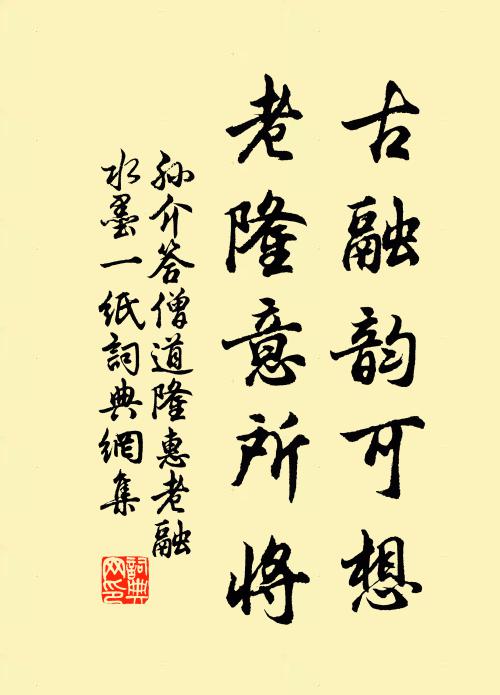 古融韵可想
老隆意所将
孙介答僧道隆惠老融
水墨一纸词典網集
詞典
网印